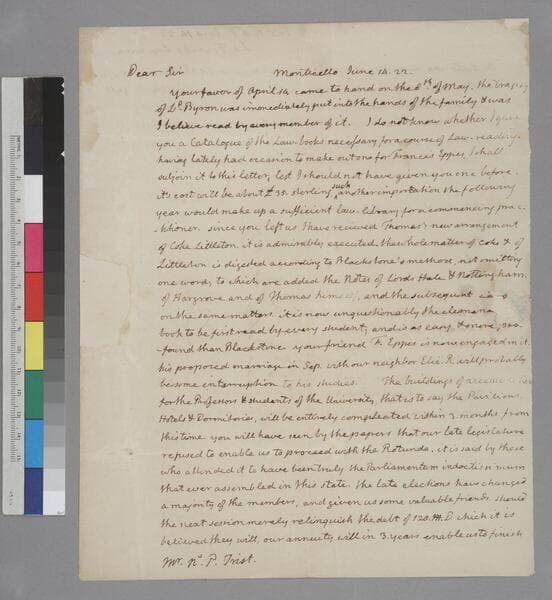 Dear Sir Monticello June 14. 22.
Your favor of April 14 came to hand on the 6th of May. the tragedy
of Ld Byron was immediately put into the hands of the family & was
I believe read by every member of it. I do not know whether I gave
you a Catalogue of the Law-books necessary for a course of Law-reading
having lately had occasion to make out one for Francis Eppes, I shall
subjoin it to this letter, lest I should not have given you one before.
it's cost will be about £35. sterling such another importation the following
year would make up a sufficient law-library for a commencing prac-
titioner. since you left us I have recieved Thomas's new arrangement
of Coke Littleton. it is admirably executed. the whole matter of Coke & of
Littleton is digested according to Blackstone's method, not omitting
one word, to which are added the Notes of Lords Hale & Nottingham
of Hargrave and of Thomas himself, and the subsequent
on the same matters. it is now unquestionably the
book to be first read by every student, and is as easy & more pro-
found than Blackstone. your friend F. Eppes is now engaged in it.
his proposed marriage in Sep. with our neighbor Eliz. R. will probably
be some interruption to his studies. The buildings of
for the Professors & students of the University, that is to say the Pavilions,
Hotels & Dormitories, will be entirely compleated within 3. months from
this time. you will have seen by the papers that our late legislature
refused to enable us to proceed with the Rotunda. it is said by those
who attended it to have been truly the Parliamentum indoctissimum
that ever assembled in this state. the late elections have changed
a majority of the members, and given us some valuable friends. should
the next session merely relinquish the debt of 120.M.D which it is
believed they will, our annuity will in 3. years enable us to finish
Mr. Ns. P. Trist.